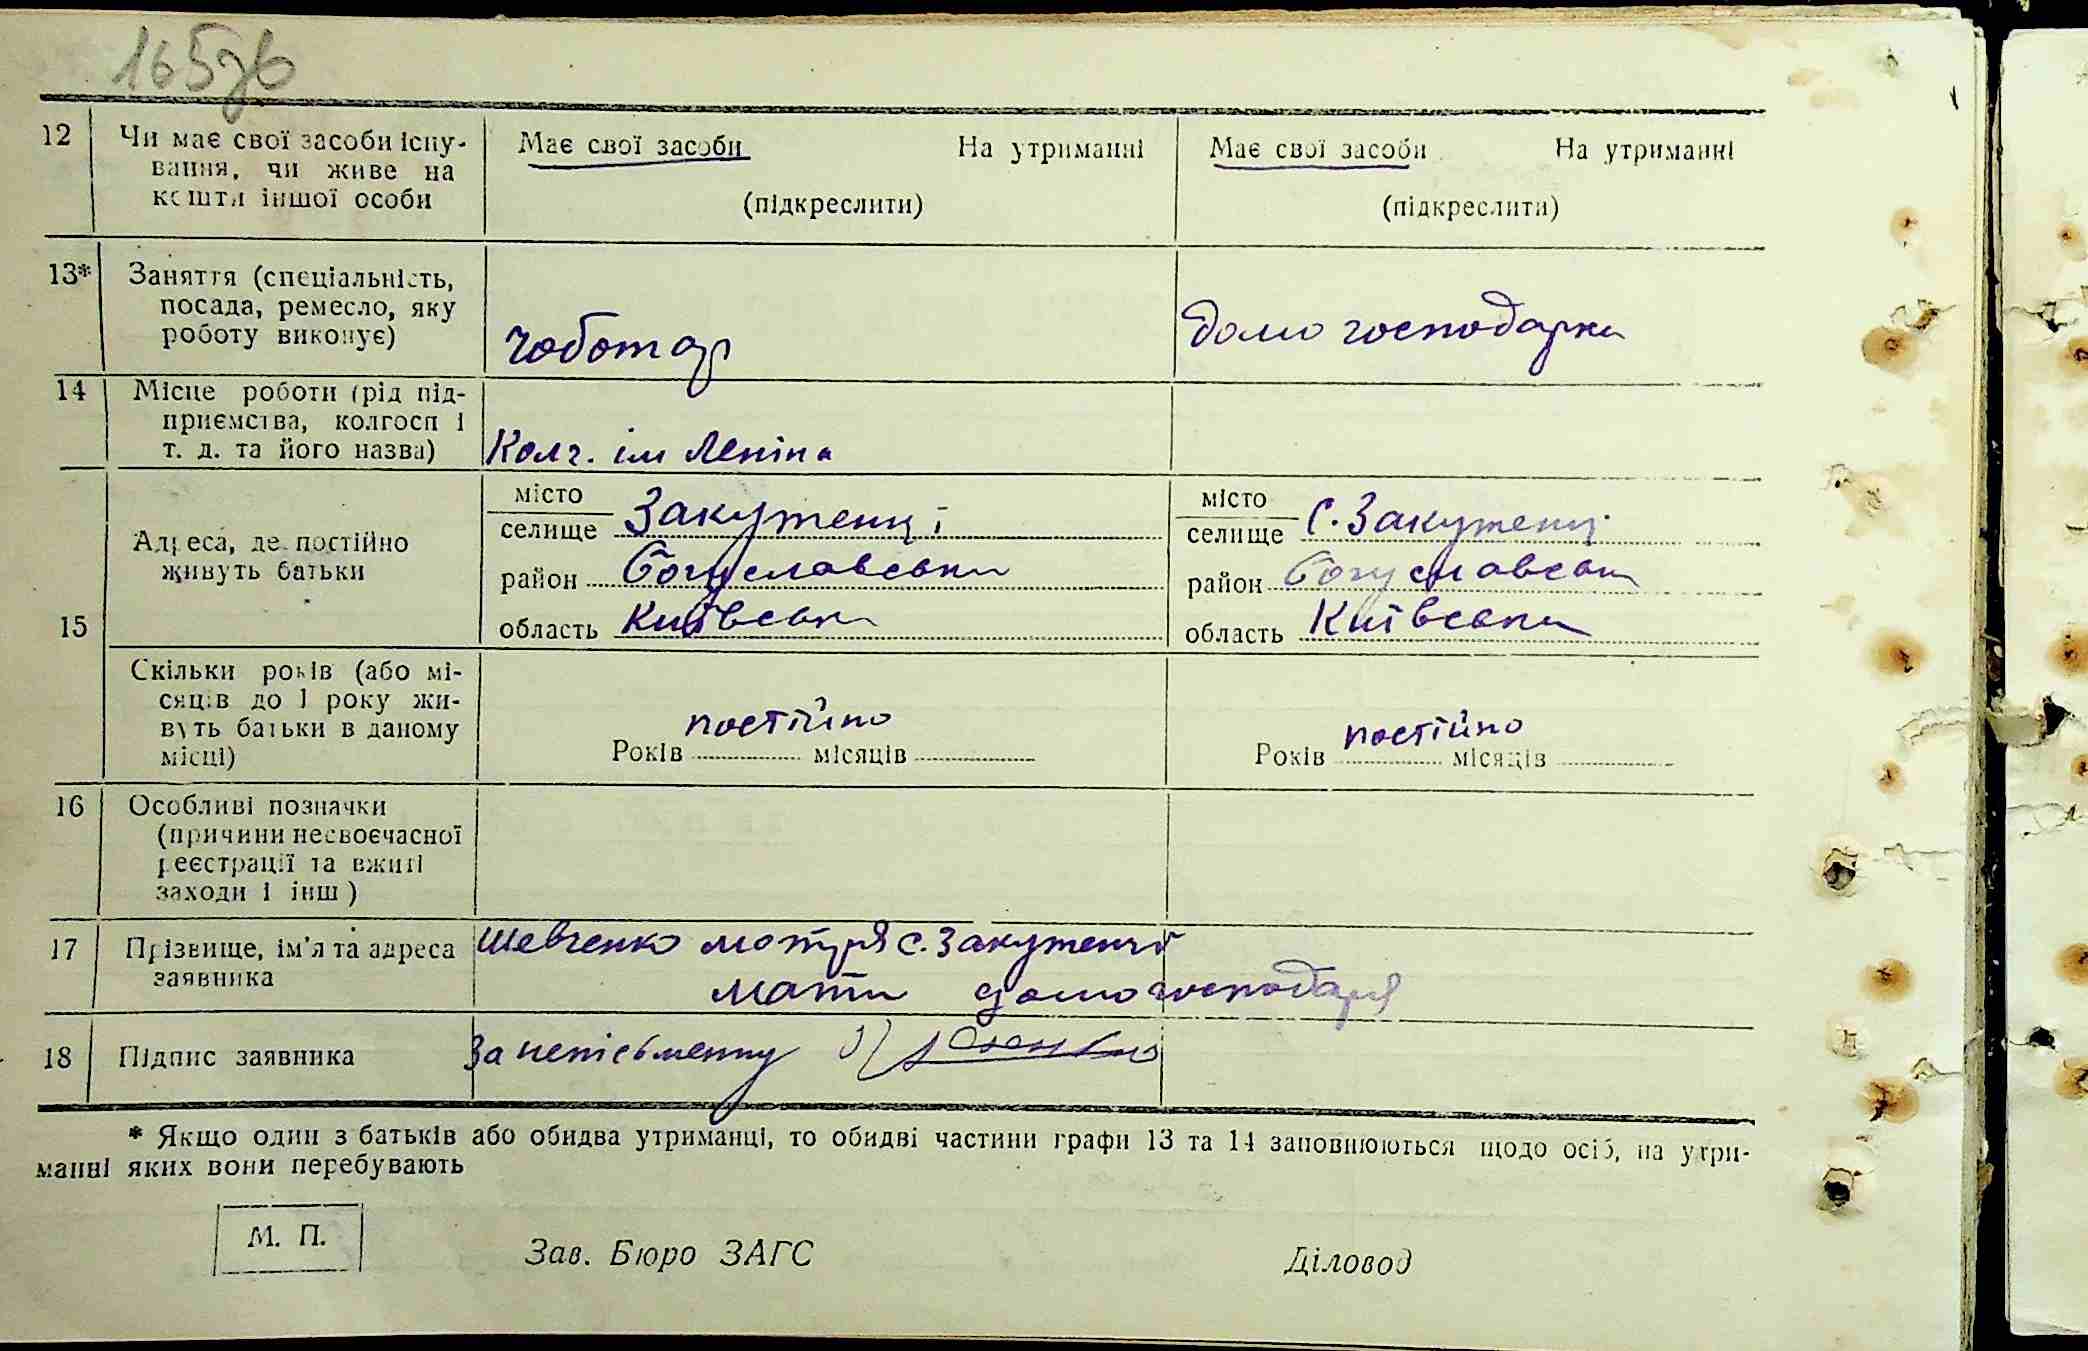 165зв
12 Чи має свої засоби існу-
вання, чи живе на
кошти іншої особи
Має свої засоби На утриманні
(підкреслити)
Має свої засоби На утриманні
(підкреслити)
13* Заняття (спеціальність,
посада, ремесло, яку
роботу виконує)
чоботар
домогосподарка
14 Місце роботи (рід під-
приємства, колгосп і
т. д. та його назва)
Колг. ім Леніна
15
Адреса, де постійно
живуть батьки
місто
селище Закутенці
район Богуславськи
область Київськи
місто
селище С. Закутенці
район Богуславськи
область Київськи
Скільки років (або мі-
сяців до 1 року жи-
вуть батьки в даному
місці)
постійно
Років місяців
постійно
Років місяців
16 Особливі позначки
(причини несвоєчасної
реєстрації та вжиті
заходи і інш)
17 Прізвище, ім'я та адреса
заявника
Шевченко мотря с. Закутенці
мати домогосподаря
18 Підпис заявника
За неписьменну
* Якщо один з батьків або обидва утриманці, то обидві частини графи 13 та 14 заповнюються щодо осіб, на утри-
манні яких вони перебувають
М. П.
Зав. Бюро ЗАГС
Діловод